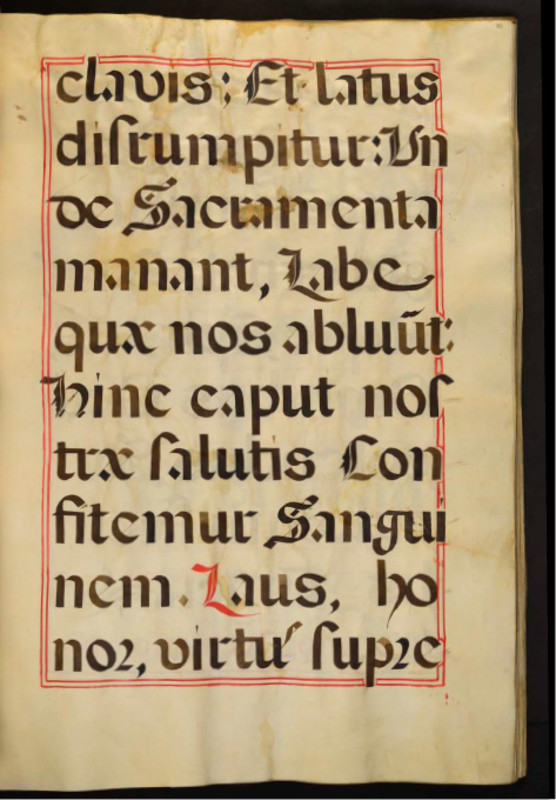 clavis: Et latus
diſrumpitur: Un
de Sacramenta
manant, Labe
quæ nos abluūt:
hinc caput noſ
træ ſalutis Con
fitemur Sangui
nem. Laus, ho
nor, virtu' ſupre